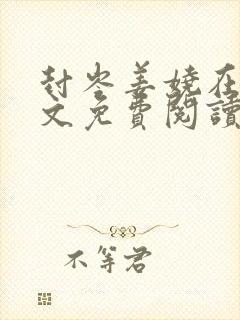 封岑姜娆在
文免費閱讀
不等君